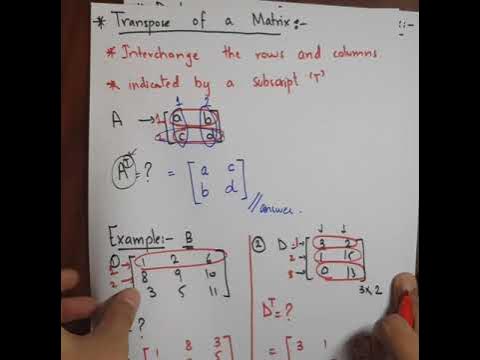 * Transpose of a Matrix:-
* Interchange the rows and columns.
* indicated by a subscript 'T'
1 2
A → 1 [a b
2 c d]
Aᵀ = ? = [a c
b d]
// answer.
Example:- B
① 1 → [1 2 6
2 → 8 9 10
3 5 11]
= ?
= [1 8 3
② D = 1 → [3 2
2 1 15
3 → 0 13]
3x,2
Dᵀ = ?
= [3 1